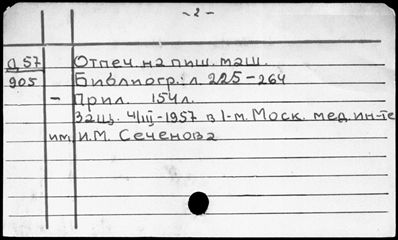 - 2 -
Д 57 Отпеч. на пиш. маш.
905 Библиогр.: л. 225-264
- Прил. 154 л.
Защ. 4/III-1957 в I-м. Моск. мед. ин-те
им. И.М. Сеченова